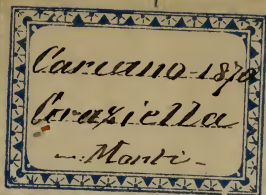 Carcano - 1870
Graziella
- Monti -